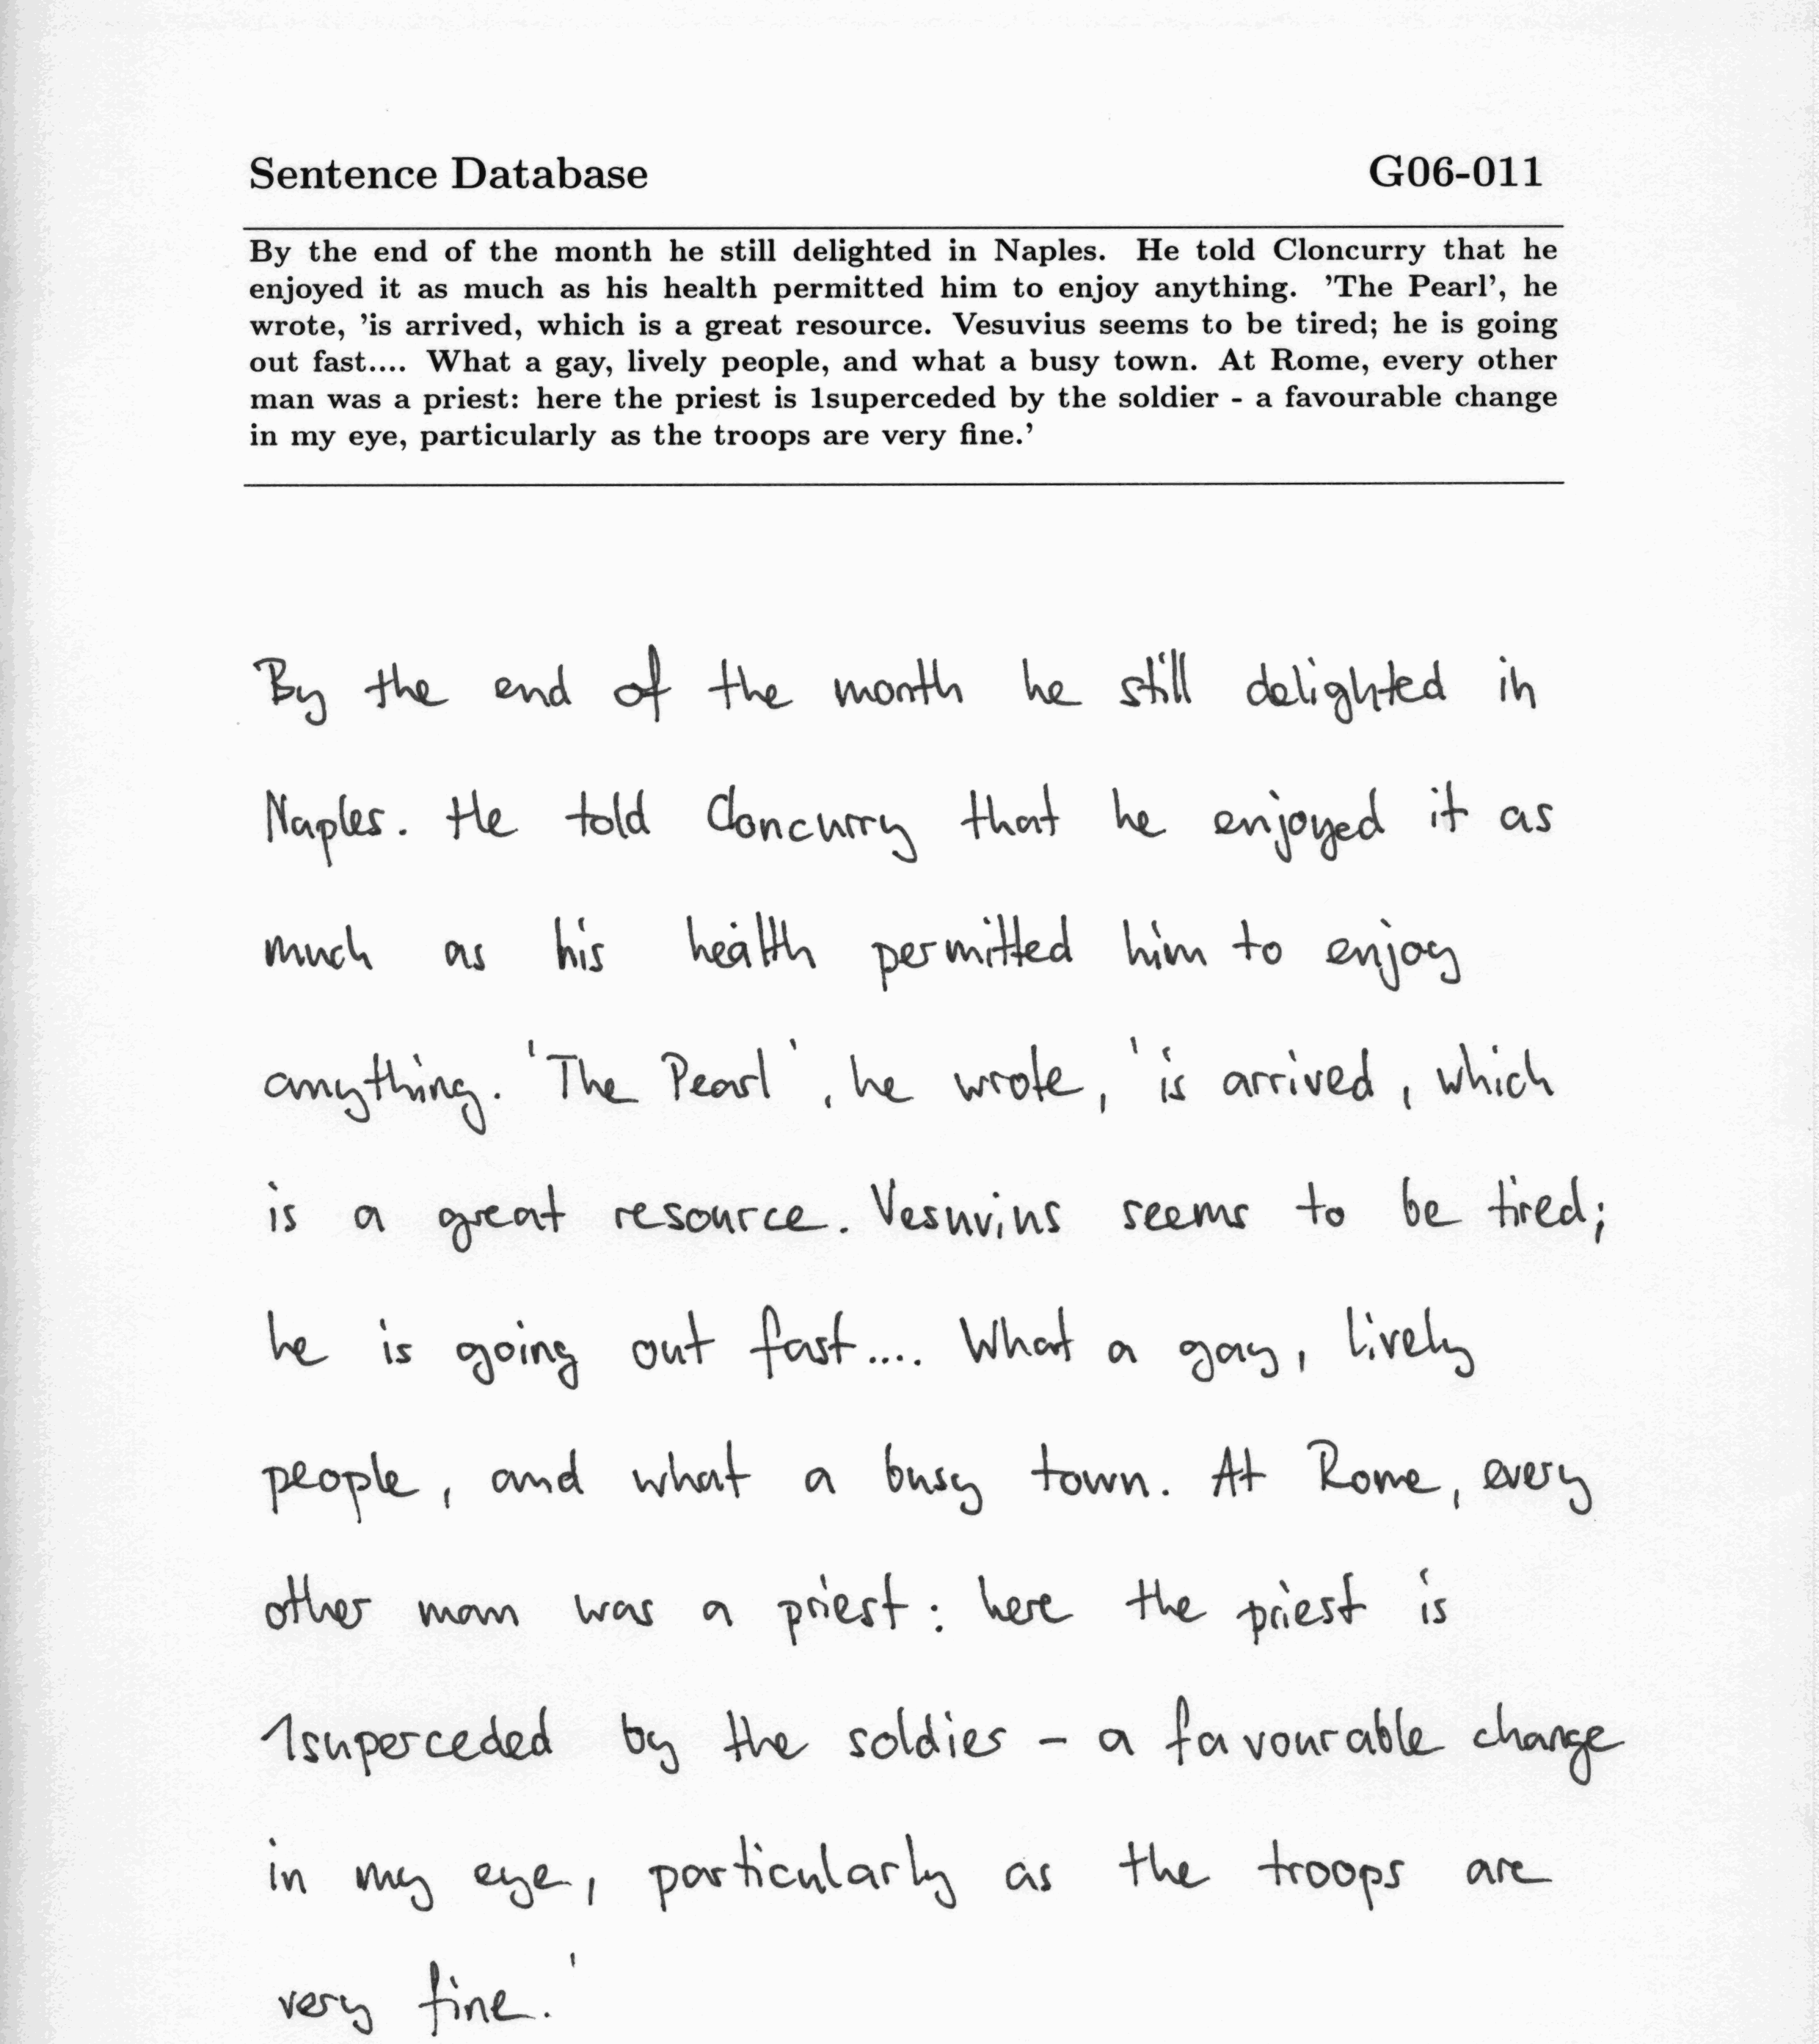 Sentence Database G06-011
By the end of the month he still delighted in Naples. He told Cloncurry that he
enjoyed it as much as his health permitted him to enjoy anything. 'The Pearl', he
wrote, 'is arrived, which is a great resource. Vesuvius seems to be tired; he is going
out fast.... What a gay, lively people, and what a busy town. At Rome, every other
man was a priest: here the priest is 1superceded by the soldier - a favourable change
in my eye, particularly as the troops are very fine.'
By the end of the month he still delighted in
Naples. He told Cloncurry that he enjoyed it as
much as his health permitted him to enjoy
anything. 'The Pearl', he wrote, 'is arrived, which
is a great resource. Vesuvius seems to be tired;
he is going out fast.... What a gay, lively
people, and what a busy town. At Rome, every
other man was a priest: here the priest is
1superceded by the soldier - a favourable change
in my eye, particularly as the troops are
very fine.'